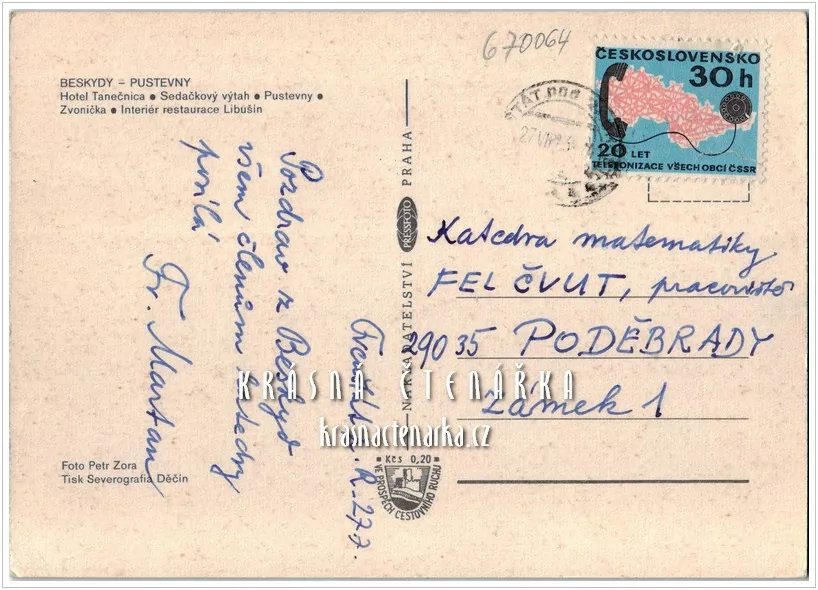 670064
BESKYDY – PUSTEVNY
Hotel Tanečnica ● Sedačkový výtah ● Pustevny ●
Zvonička ● Interiér restaurace Libušín
Pozdrav z Beskyd
všem členům katedry
posílá
Fr. Martan
R-277.
Foto Petr Zora
Tisk Severografia Děčín
NAKLADATELSTVÍ PRESSFOTO PRAHA
Kčs 0,20
VE PROSPĚCH CESTOVNÍHO RUCHU
ČESKOSLOVENSKO
30 h
20 LET
TELEFONIZACE VŠECH OBCÍ ČSSR
Katedra matematiky
FEL ČVUT, pracoviště
29035 PODĚBRADY
Zámek 1
KRÁSNÁ ČTENÁŘKA
krasnactenarka.cz